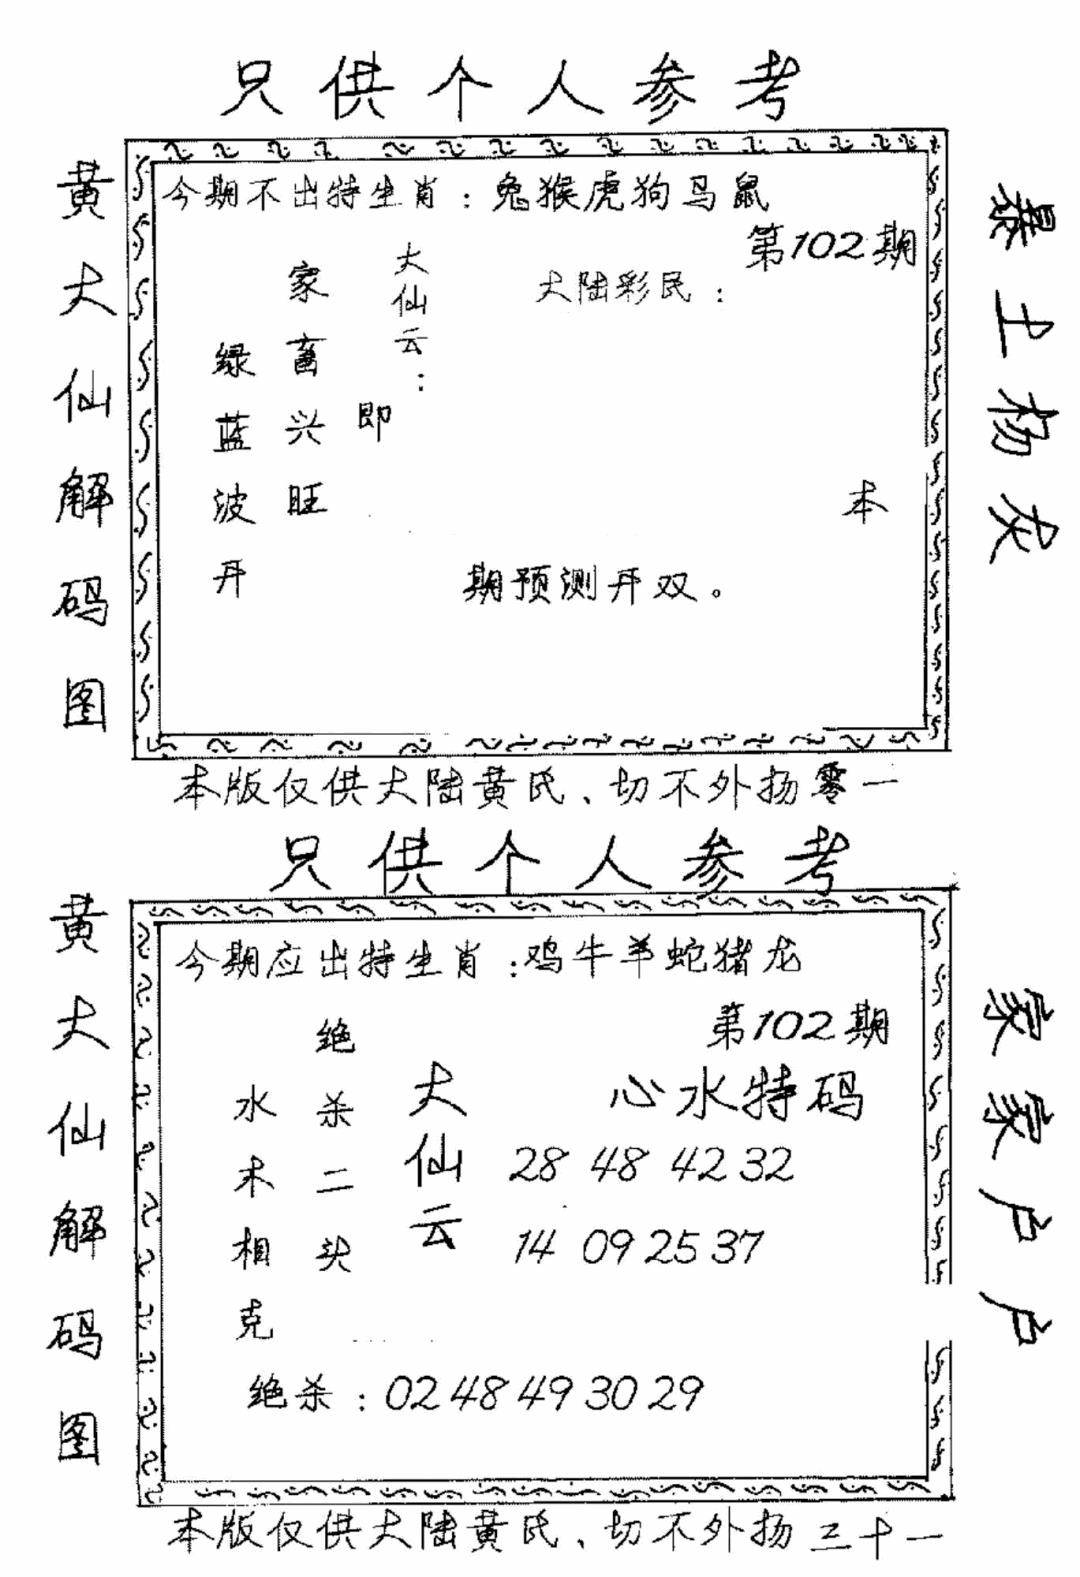 只供个人参考
黄大仙解码图
今期不出特生肖：兔猴虎狗马鼠
第102期
大陆彩民：
大仙云：
即
家畜兴旺
绿蓝波开
本
期预测开双。
暴土杨灰
本版仅供大陆黄氏、切不外扬零一
只供个人参考
黄大仙解码图
今期应出特生肖：鸡牛羊蛇猪龙
第102期
心水特码
大仙云
绝杀二头
水木相克
28 48 42 32
14 09 25 37
绝杀：02 48 49 30 29
家家户户
本版仅供大陆黄氏、切不外扬三十一